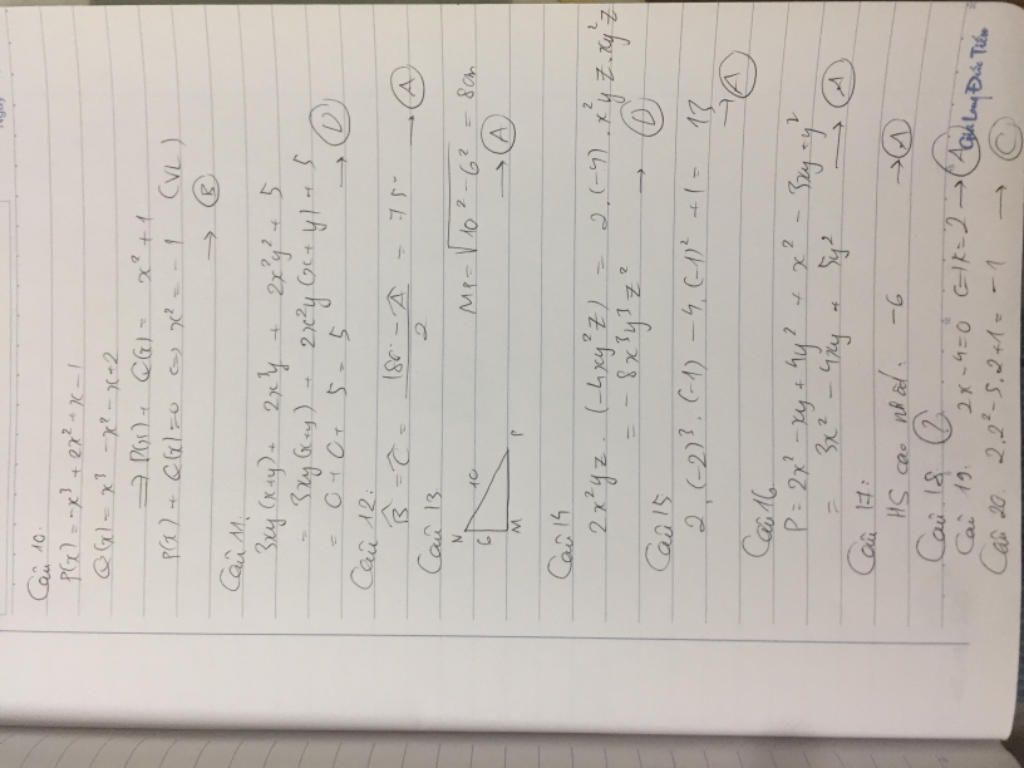 Câu 10.
P(x) = -x³ + 2x² + x - 1
Q(x) = x³ - x² - x + 2
⇒ P(x) + Q(x) = x² + 1
P(x) + Q(x) = 0 ⇔ x² = -1 (VL)
→ B
Câu 11:
3xy(x+y) + 2x³y + 2x²y² + 5
= 3xy(x+y) + 2x²y(x+y) + 5
= 0 + 0 + 5 = 5 → D
Câu 12:
B̂ = Ĉ = (180° - Â)/2 = 75° → A
Câu 13
N 6 10 M P
MP = √(10² - 6²) = 8cm
→ A
Câu 14
2x²yz.(-4xy²z) = 2.(-4).x²yz.xy²z
= -8x³y³z² → D
Câu 15
2.(-2)³.(-1) - 4.(-1)² + 1 = 13
→ A
Câu 16
P = 2x² - xy + 4y² + x² - 3xy + y²
= 3x² - 4xy + 5y² → A
Câu 17:
HS cao nhất: -6 → A
Câu 18 ?
Câu 19. 2x - 4 = 0 ⇔ x = 2 → A
Câu 20. 2.2² - 5.2 + 1 = -1 → C